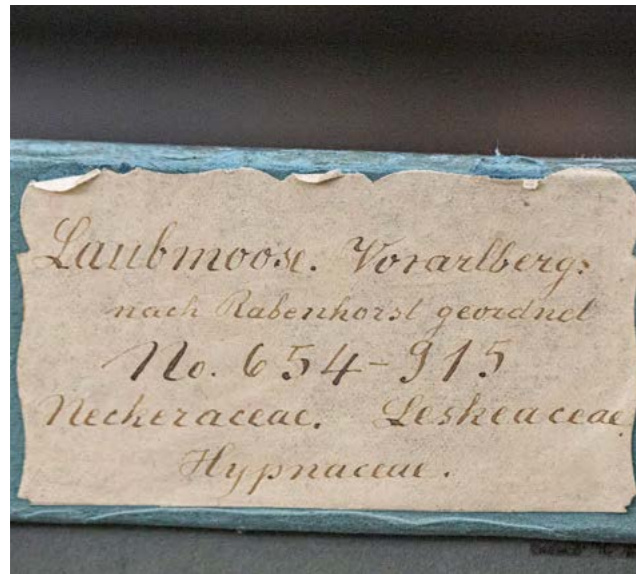 Laubmoose. Vorarlbergs
nach Rabenhorst geordnet
No. 654-915
Neckeraceae. Leskeaceae
Hypnaceae.